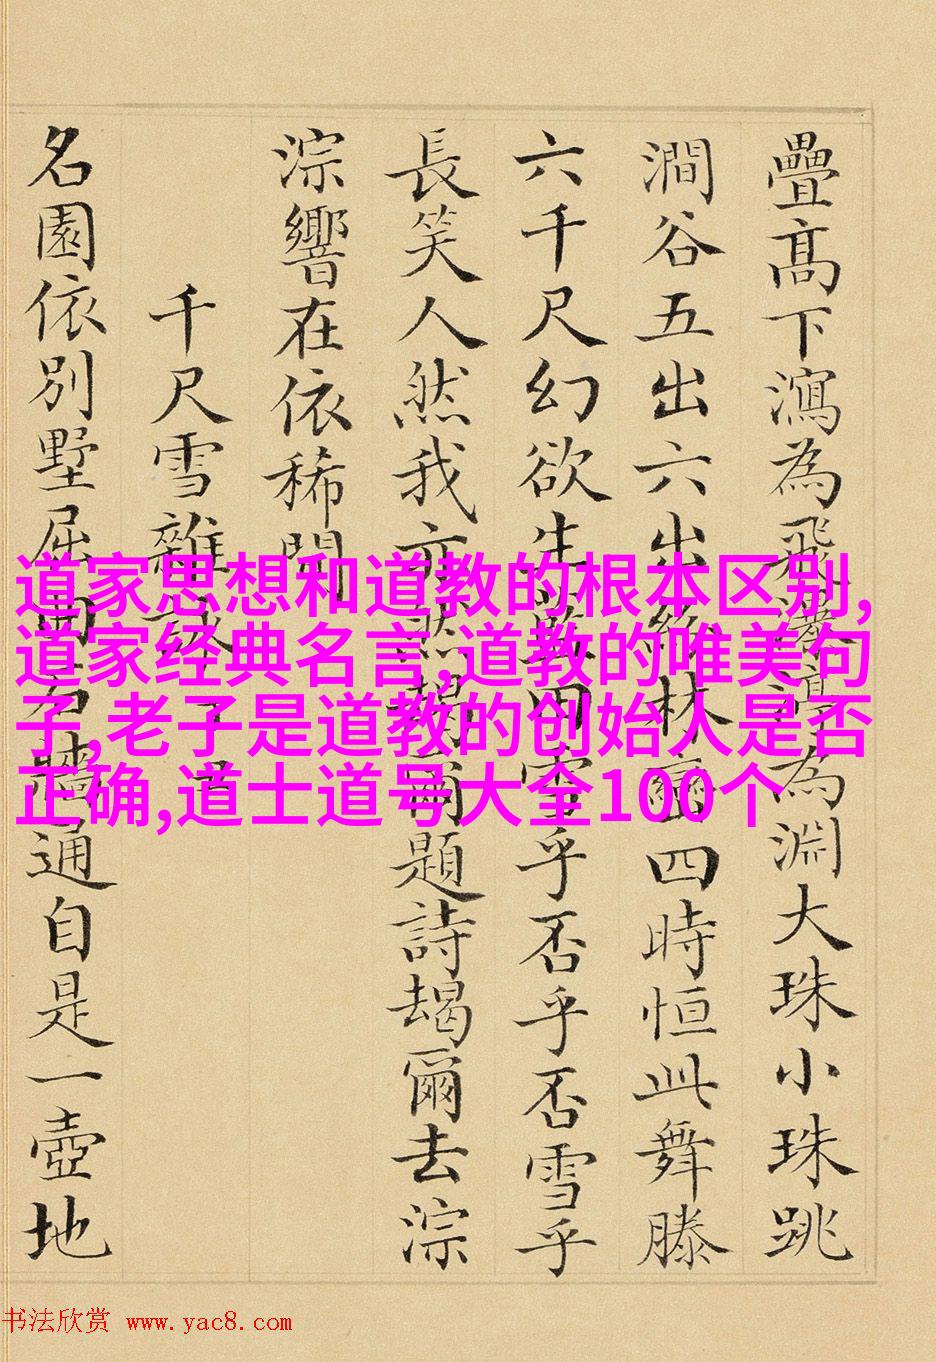 疊髙下瀉為飛瀑渟為淵大珠小珠跳
澗谷五出六出林巒四時恒此舞滕
六千尺幻欲生雪乎否乎否雪乎
長笑人然我亦然朅爾題詩朅爾去淙
淙響在依稀聞
千尺雪雜詠
名園依別墅屈曲石牆通自是一壺地
道家思想和道教的根本区别,
道家经典名言,道教的唯美句
子,老子是道教的创始人是否
正确,道士道号大全100个
书法欣赏 www.yac8.com